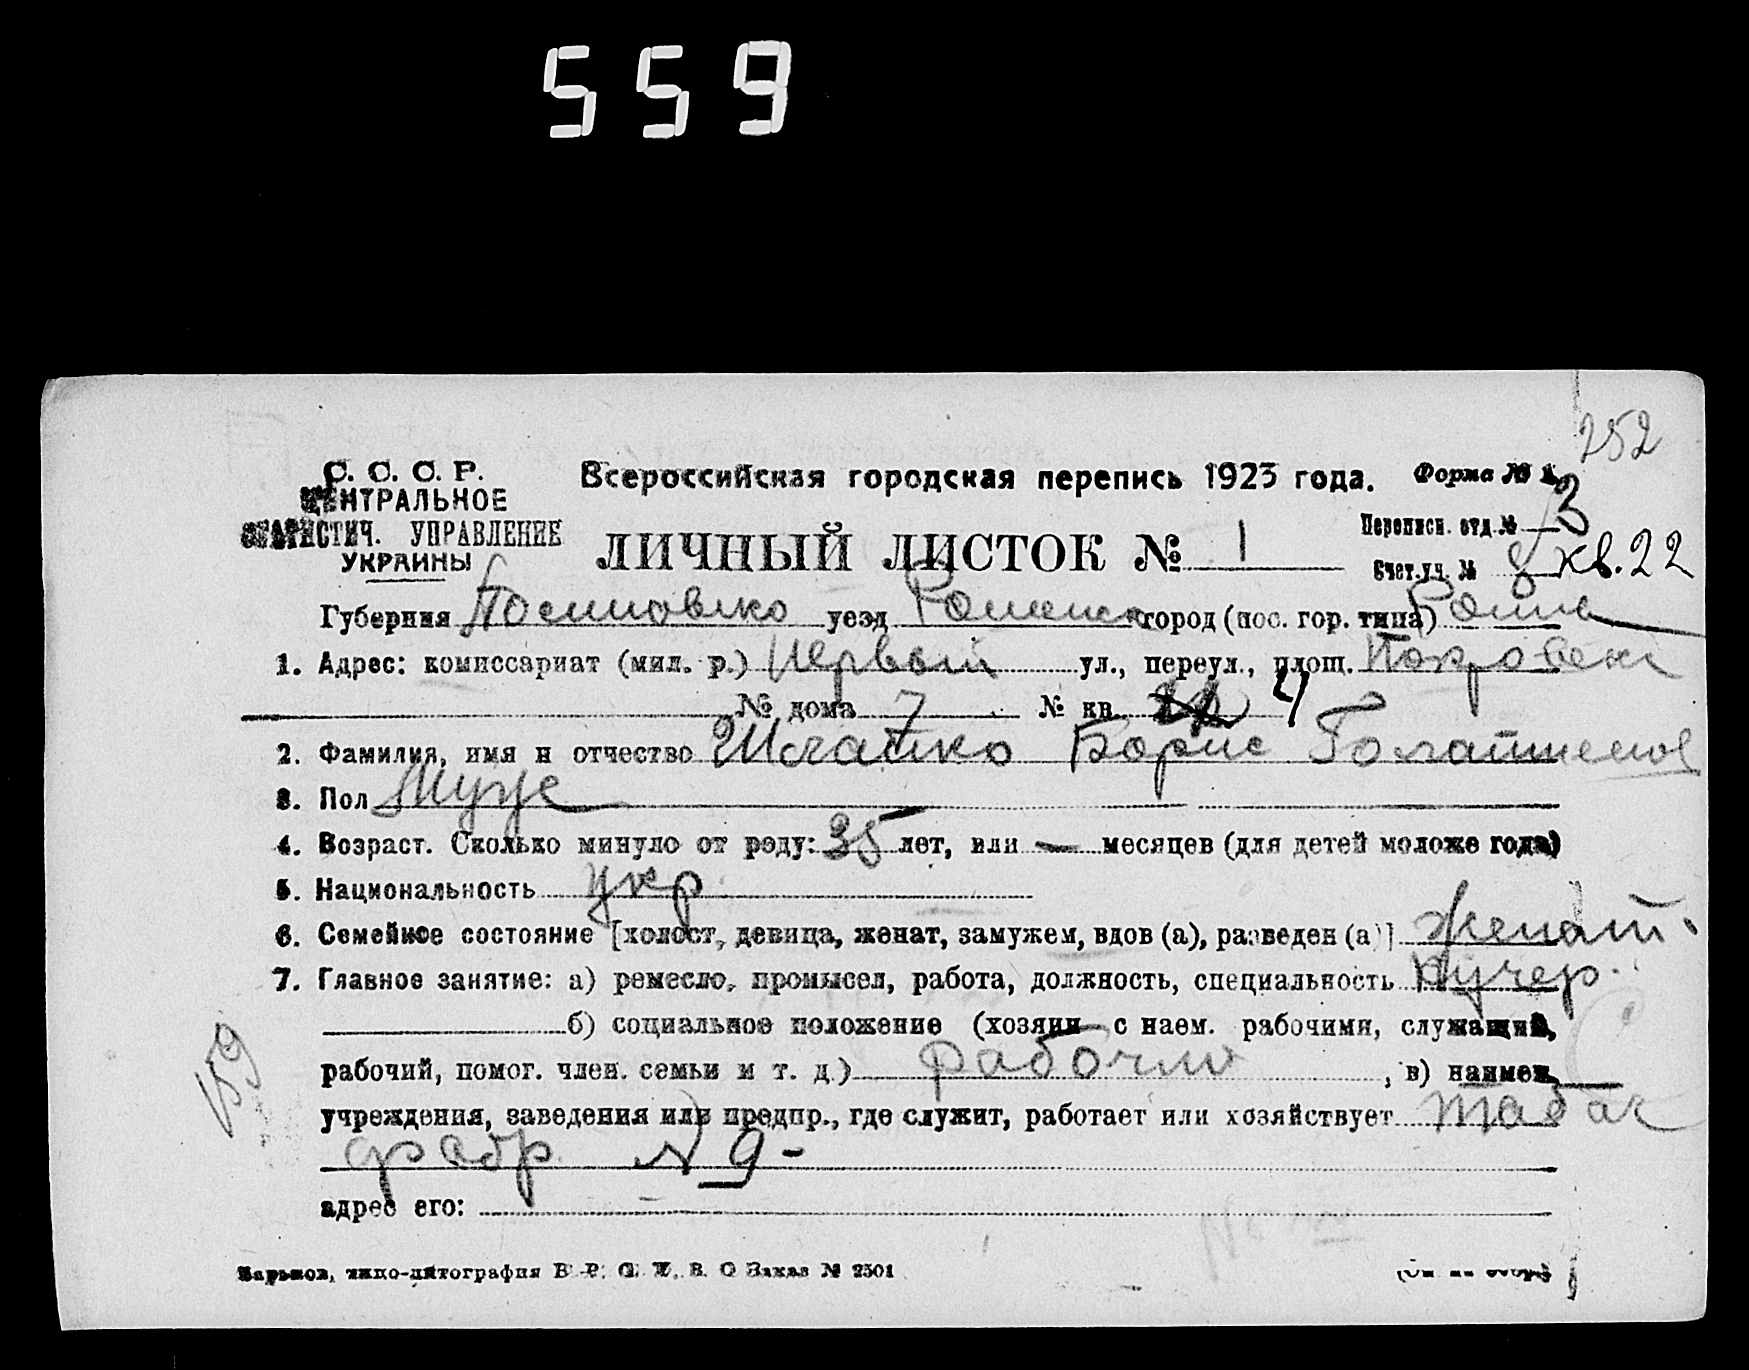 559
252
С. С. С. Р.
ЦЕНТРАЛЬНОЕ
СТАТИСТИЧ. УПРАВЛЕНИЕ
УКРАИНЫ
Всероссийская городская перепись 1923 года. Форма № 1
Переписн. отд. № 3
ЛИЧНЫЙ ЛИСТОК № 1
Счет. уч. № 8 кв. 22
Губерния уезд город (пос. гор. типа)
1. Адрес: комиссариат (мил. р.) Первый ул., переул., площ. Покровск
№ дома 7 № кв. 4
2. Фамилия, имя и отчество Борис
3. Пол Муж
4. Возраст. Сколько минуло от роду: 35 лет, или — месяцев (для детей моложе года)
5. Национальность укр
6. Семейное состояние [холост, девица, женат, замужем, вдов (а), разведен (а)] женат
7. Главное занятие: а) ремесло, промысел, работа, должность, специальность Кучер
б) социальное положение (хозяин с наем. рабочими, служащий,
159
рабочий, помог. член. семьи и т. д.) рабочий, в) наимен.
учреждения, заведения или предпр., где служит, работает или хозяйствует Табач
фабр. № 9 -
адрес его:
Харьков, типо-литография В. Заказ № 2501